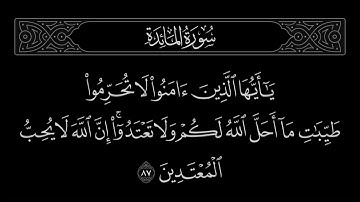 سُورَةُ المَائِدَةِ
يَٰٓأَيُّهَا ٱلَّذِينَ ءَامَنُوا۟ لَا تُحَرِّمُوا۟
طَيِّبَٰتِ مَآ أَحَلَّ ٱللَّهُ لَكُمْ وَلَا تَعْتَدُوٓا۟ۚ إِنَّ ٱللَّهَ لَا يُحِبُّ
ٱلْمُعْتَدِينَ ٨٧